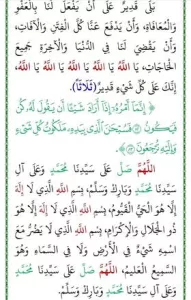 بَلَى قَدِيرٌ عَلَى أَنْ يَفْعَلَ لَنَا بِالْعَفْوِ
وَالْمُعَافَاةِ، وَأَنْ يَدْفَعَ عَنَّا كُلَّ الْفِتَنِ وَالْآفَاتِ،
وَأَنْ يَقْضِيَ لَنَا فِي الدُّنْيَا وَالْآخِرَةِ جَمِيعَ
الْحَاجَاتِ، يَا اَللهُ يَا اَللهُ يَا اَللهُ يَا اَللهُ يَا اَللهُ،
إِنَّكَ عَلَى كُلِّ شَيْءٍ قَدِيرٌ (ثَلَاثًا).
﴿إِنَّمَا أَمْرُهُ إِذَا أَرَادَ شَيْئًا أَنْ يَقُولَ لَهُ كُنْ
فَيَكُونُ ۝ فَسُبْحَانَ الَّذِي بِيَدِهِ مَلَكُوتُ كُلِّ شَيْءٍ
وَإِلَيْهِ تُرْجَعُونَ ۝﴾
اَللّٰهُمَّ صَلِّ عَلَى سَيِّدِنَا مُحَمَّدٍ وَعَلَى آلِ
سَيِّدِنَا مُحَمَّدٍ وَبَارِكْ وَسَلِّمْ، بِسْمِ اللهِ الَّذِي لَا إِلَهَ
إِلَّا هُوَ الْحَيُّ الْقَيُّومُ، بِسْمِ اللهِ الَّذِي لَا إِلَهَ إِلَّا هُوَ
ذُو الْجَلَالِ وَالْإِكْرَامِ، بِسْمِ اللهِ الَّذِي لَا يَضُرُّ مَعَ
اسْمِهِ شَيْءٌ فِي الْأَرْضِ وَلَا فِي السَّمَاءِ وَهُوَ
السَّمِيعُ الْعَلِيمُ، اَللّٰهُمَّ صَلِّ عَلَى سَيِّدِنَا مُحَمَّدٍ
وَعَلَى آلِ سَيِّدِنَا مُحَمَّدٍ وَبَارِكْ وَسَلِّمْ.